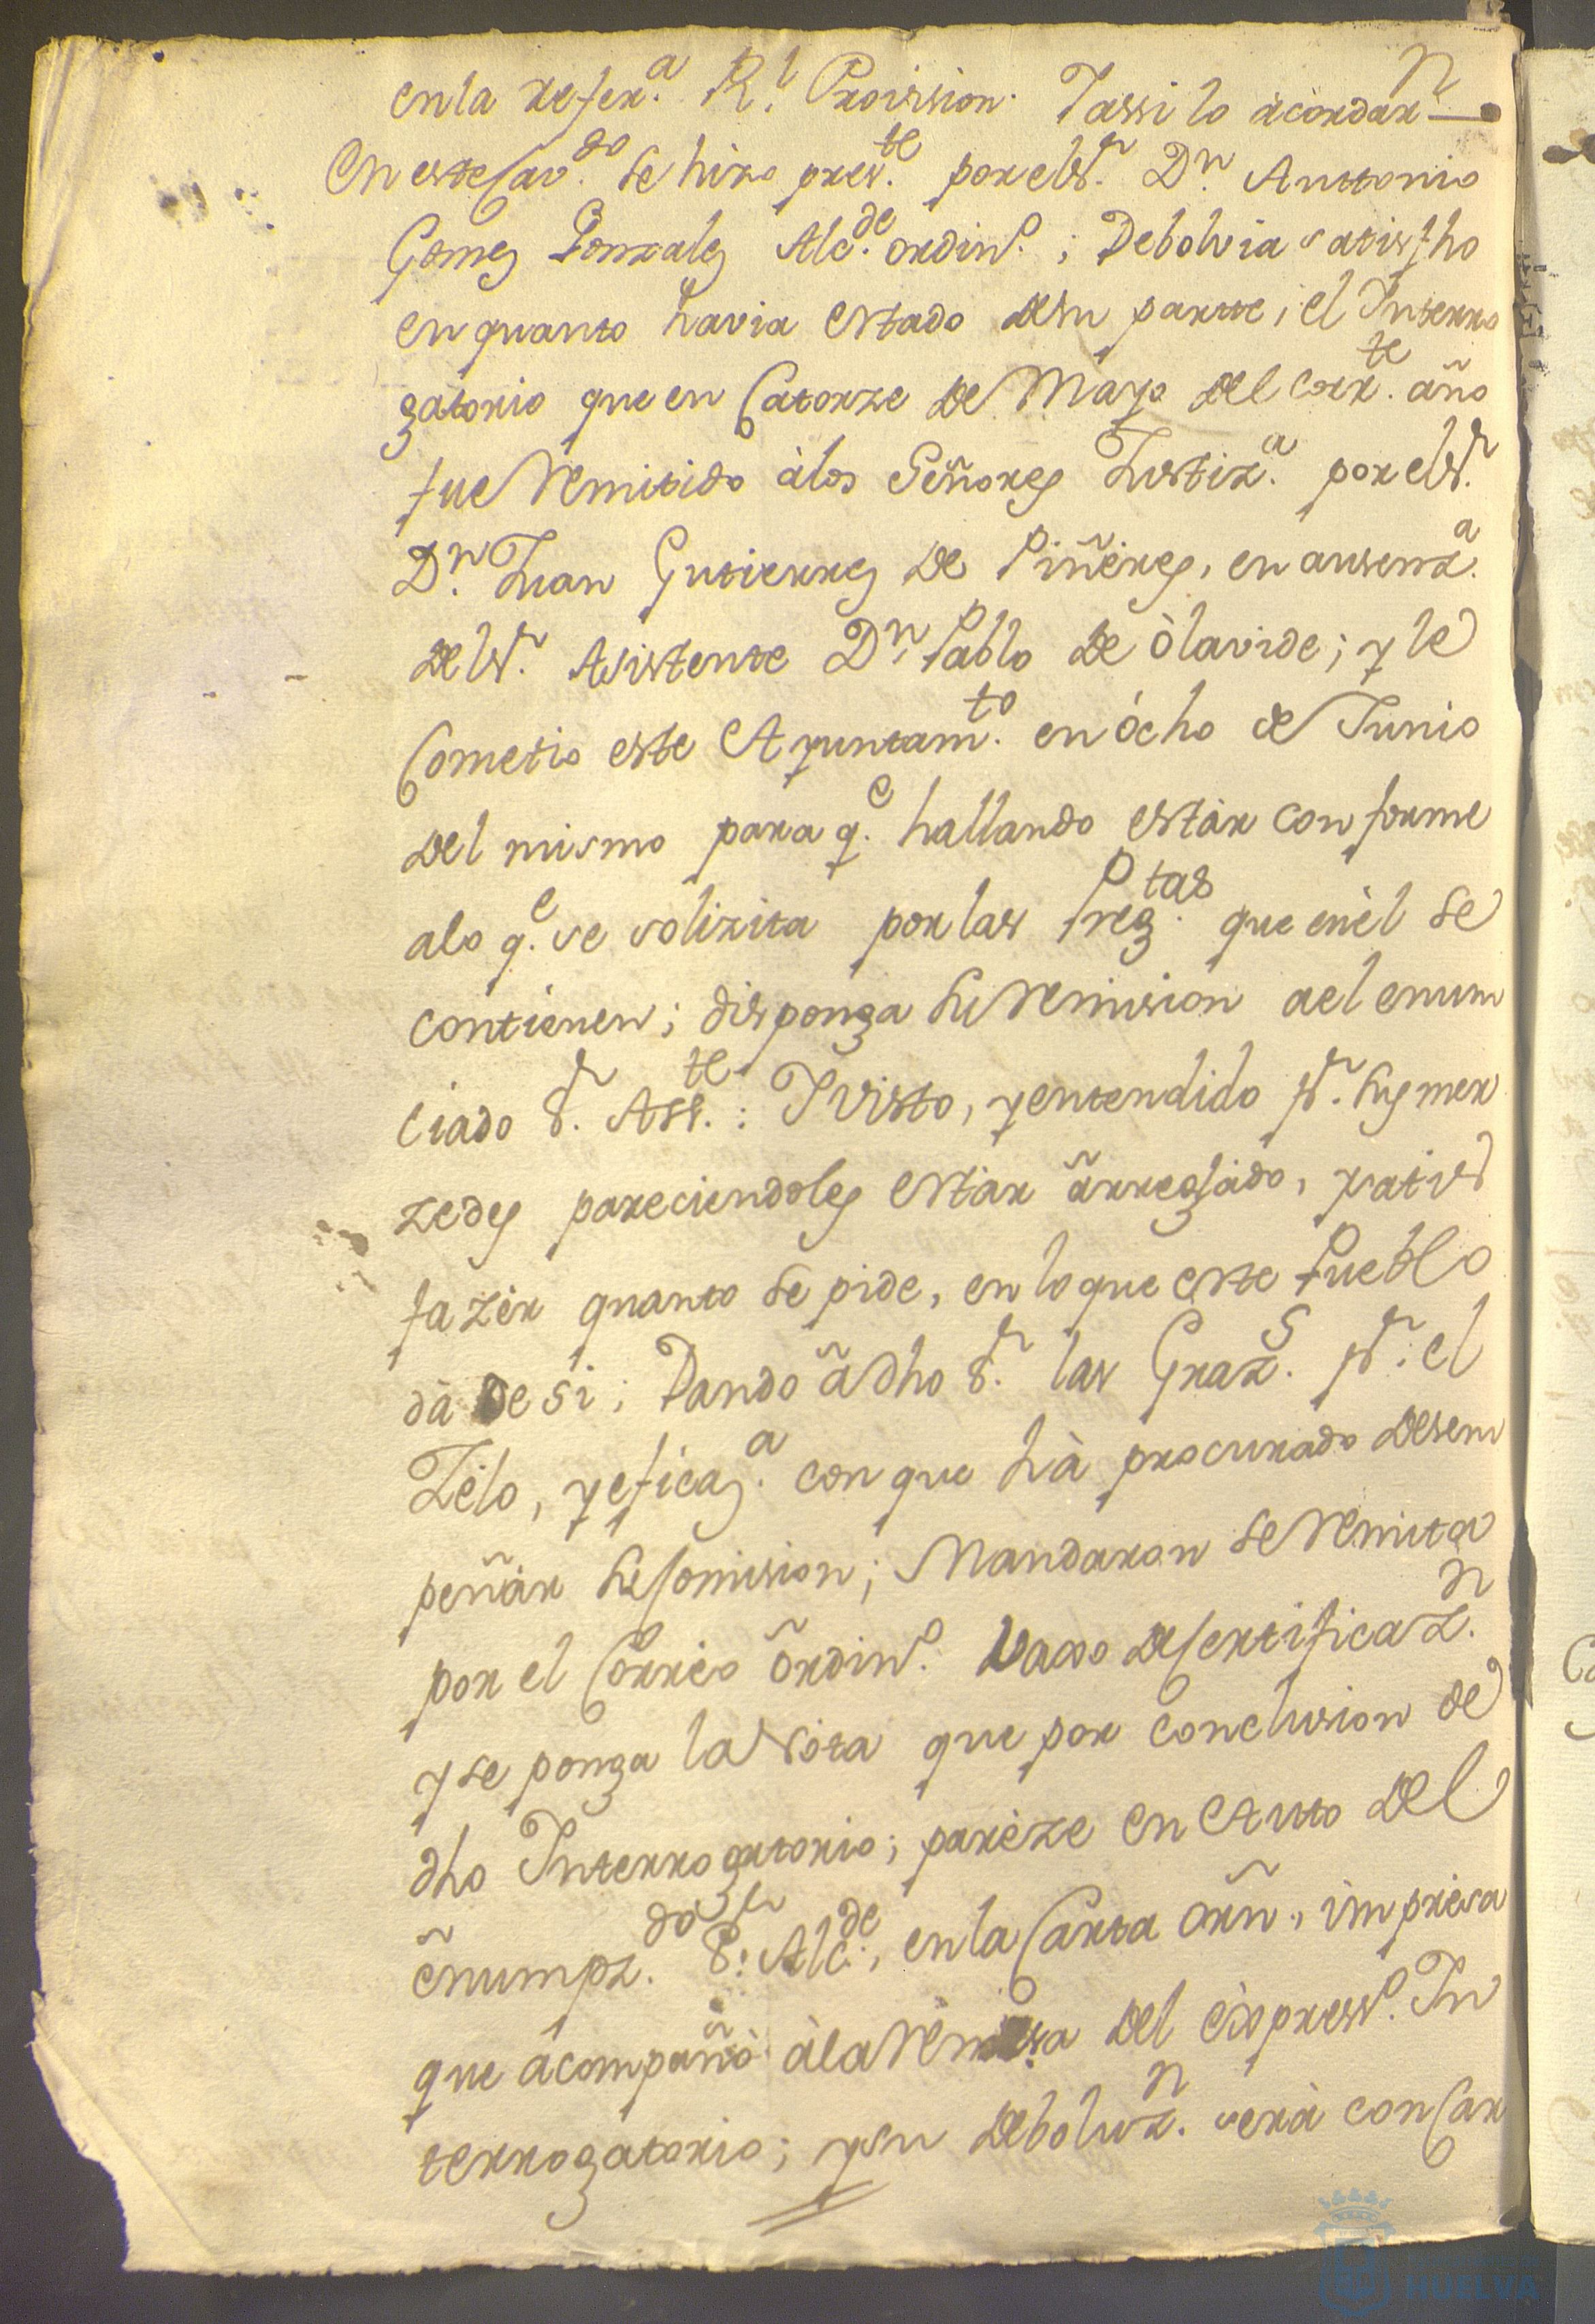 en la refer.ª R.l Provision. Y assi lo acordar.n
En este Cav.do se hizo pres.te por el S.r D.n Anttonio
Gomez Gonzalez Alc.de ordin.o; Debolvia satisfho
en quanto havia estado de su partte, el Interro
gatorio que en Catorze de Mayo del corr.te año
fue remitido à los Señores Justiz.a por el S.r
D.n Juan Gutierrez de Piñeres, en ausenz.a
del S.r Asistente D.n Pablo de Olavide; y le
Cometio este Ayuntam.to en ócho de Junio
del mismo para q.e hallando estàr conforme
alo q.e se solizita por las Preg.tas que en èl se
contienen; disponga su remision a el enum
ciado S.r Ass.te: Y visto, y entendido p.r sus mer
zedes pareciendoles estàr arreglado, y satis
fazèr quanto se pide, en lo que este Pueblo
dà de si; Dando à dho S.r las Graz.s p.r el
Zèlo, y eficaz.a con que hà procurado desem
peñàr su Comision; Mandaron se remita
por el Corrèo ordin.o vaxo de Certificaz.n
y se ponga la Nota que por conclusion de
dho Interrogatorio; parèze en Autto del
enumpz.do S.r Alc.de, en la Carta orñ, impresa
que acompañó à la remesa del èxpress.o In
terrogatorio; y su deboluz.n serà con Car
HUELVA